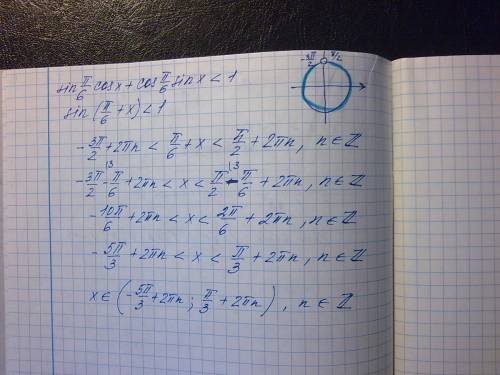 sin π/6 cosx + cos π/6 sinx < 1
-3π/2 π/2
sin (π/6 + x) < 1
-3π/2 + 2πn < π/6 + x < π/2 + 2πn, n∈Z
-3π/2 ^{\3} - π/6 + 2πn < x < π/2 ^{\3} - π/6 + 2πn, n∈Z
-10π/6 + 2πn < x < 2π/6 + 2πn, n∈Z
-5π/3 + 2πn < x < π/3 + 2πn, n∈Z
x∈(-5π/3 + 2πn; π/3 + 2πn), n∈Z